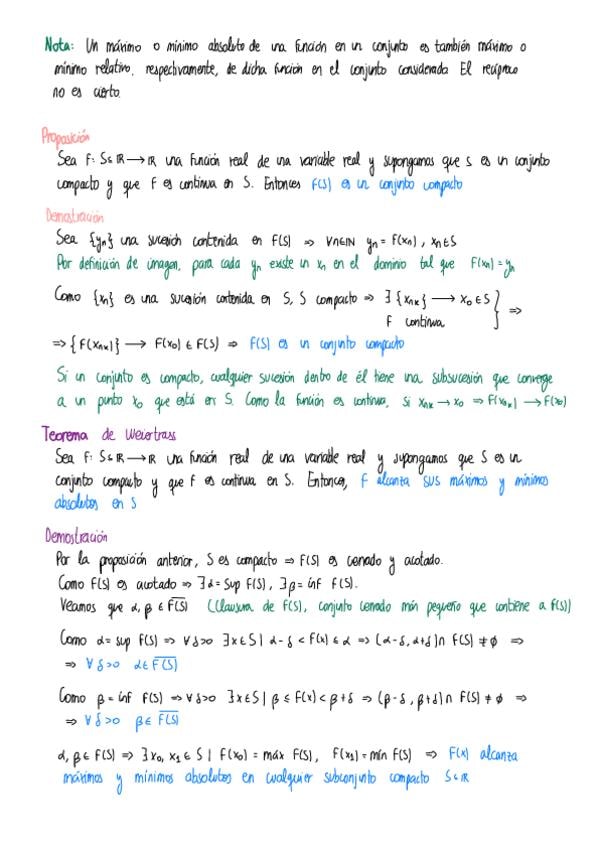 Nota: Un máximo o mínimo absoluto de una función en un conjunto es también máximo o
mínimo relativo, respectivamente, de dicha función en el conjunto considerado. El recíproco
no es cierto.
Proposición
Sea F: S⊆ℝ → ℝ una función real de una variable real y supongamos que S es un conjunto
compacto y que F es continua en S. Entonces F(S) es un conjunto compacto
Demostración
Sea {yₙ} una sucesión contenida en F(S) ⇒ ∀n∈ℕ yₙ = F(xₙ), xₙ∈S
Por definición de imagen, para cada yₙ existe un xₙ en el dominio tal que F(xₙ) = yₙ
Como {xₙ} es una sucesión contenida en S, S compacto ⇒ ∃ {xₙₖ} → x₀ ∈ S } ⇒
F continua
⇒ {F(xₙₖ)} → F(x₀) ∈ F(S) ⇒ F(S) es un conjunto compacto
Si un conjunto es compacto, cualquier sucesión dentro de él tiene una subsucesión que converge
a un punto x₀ que está en S. Como la función es continua, si xₙₖ → x₀ ⇒ F(xₙₖ) → F(x₀)
Teorema de Weiertrass
Sea F: S⊆ℝ → ℝ una función real de una variable real y supongamos que S es un
conjunto compacto y que F es continua en S. Entonces, F alcanza sus máximos y mínimos
absolutos en S
Demostración
Por la proposición anterior, S es compacto ⇒ F(S) es cerrado y acotado.
Como F(S) es acotado ⇒ ∃ α = sup F(S), ∃ β = inf F(S).
Veamos que α, β ∈ F̅(̅S̅)̅ (Clausura de F(S), conjunto cerrado más pequeño que contiene a F(S))
Como α = sup F(S) ⇒ ∀ δ>0 ∃x∈S | α-δ < F(x) ≤ α ⇒ (α-δ, α+δ) ∩ F(S) ≠ ∅ ⇒
⇒ ∀ δ>0 α∈ F̅(̅S̅)̅
Como β = inf F(S) ⇒ ∀ δ>0 ∃x∈S | β ≤ F(x) < β+δ ⇒ (β-δ, β+δ) ∩ F(S) ≠ ∅ ⇒
⇒ ∀ δ>0 β∈ F̅(̅S̅)̅
α, β ∈ F(S) ⇒ ∃ x₀, x₁ ∈ S | F(x₀) = máx F(S), F(x₁) = mín F(S) ⇒ F(x) alcanza
máximos y mínimos absolutos en cualquier subconjunto compacto S⊆ℝ